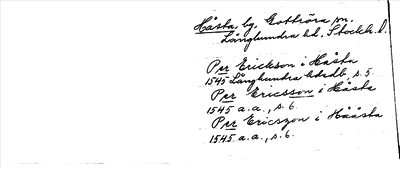 Håsta, by, Gottröra sn.
Långhundra hd. Stockh. l.
Per Erickson i Håsta
1545 Långhundra hdrdb, s. 5.
Per Ericsson i Håsta
1545 a.a., s. 6.
Per Ericszon i Hååsta
1545 a.a., s. 6.